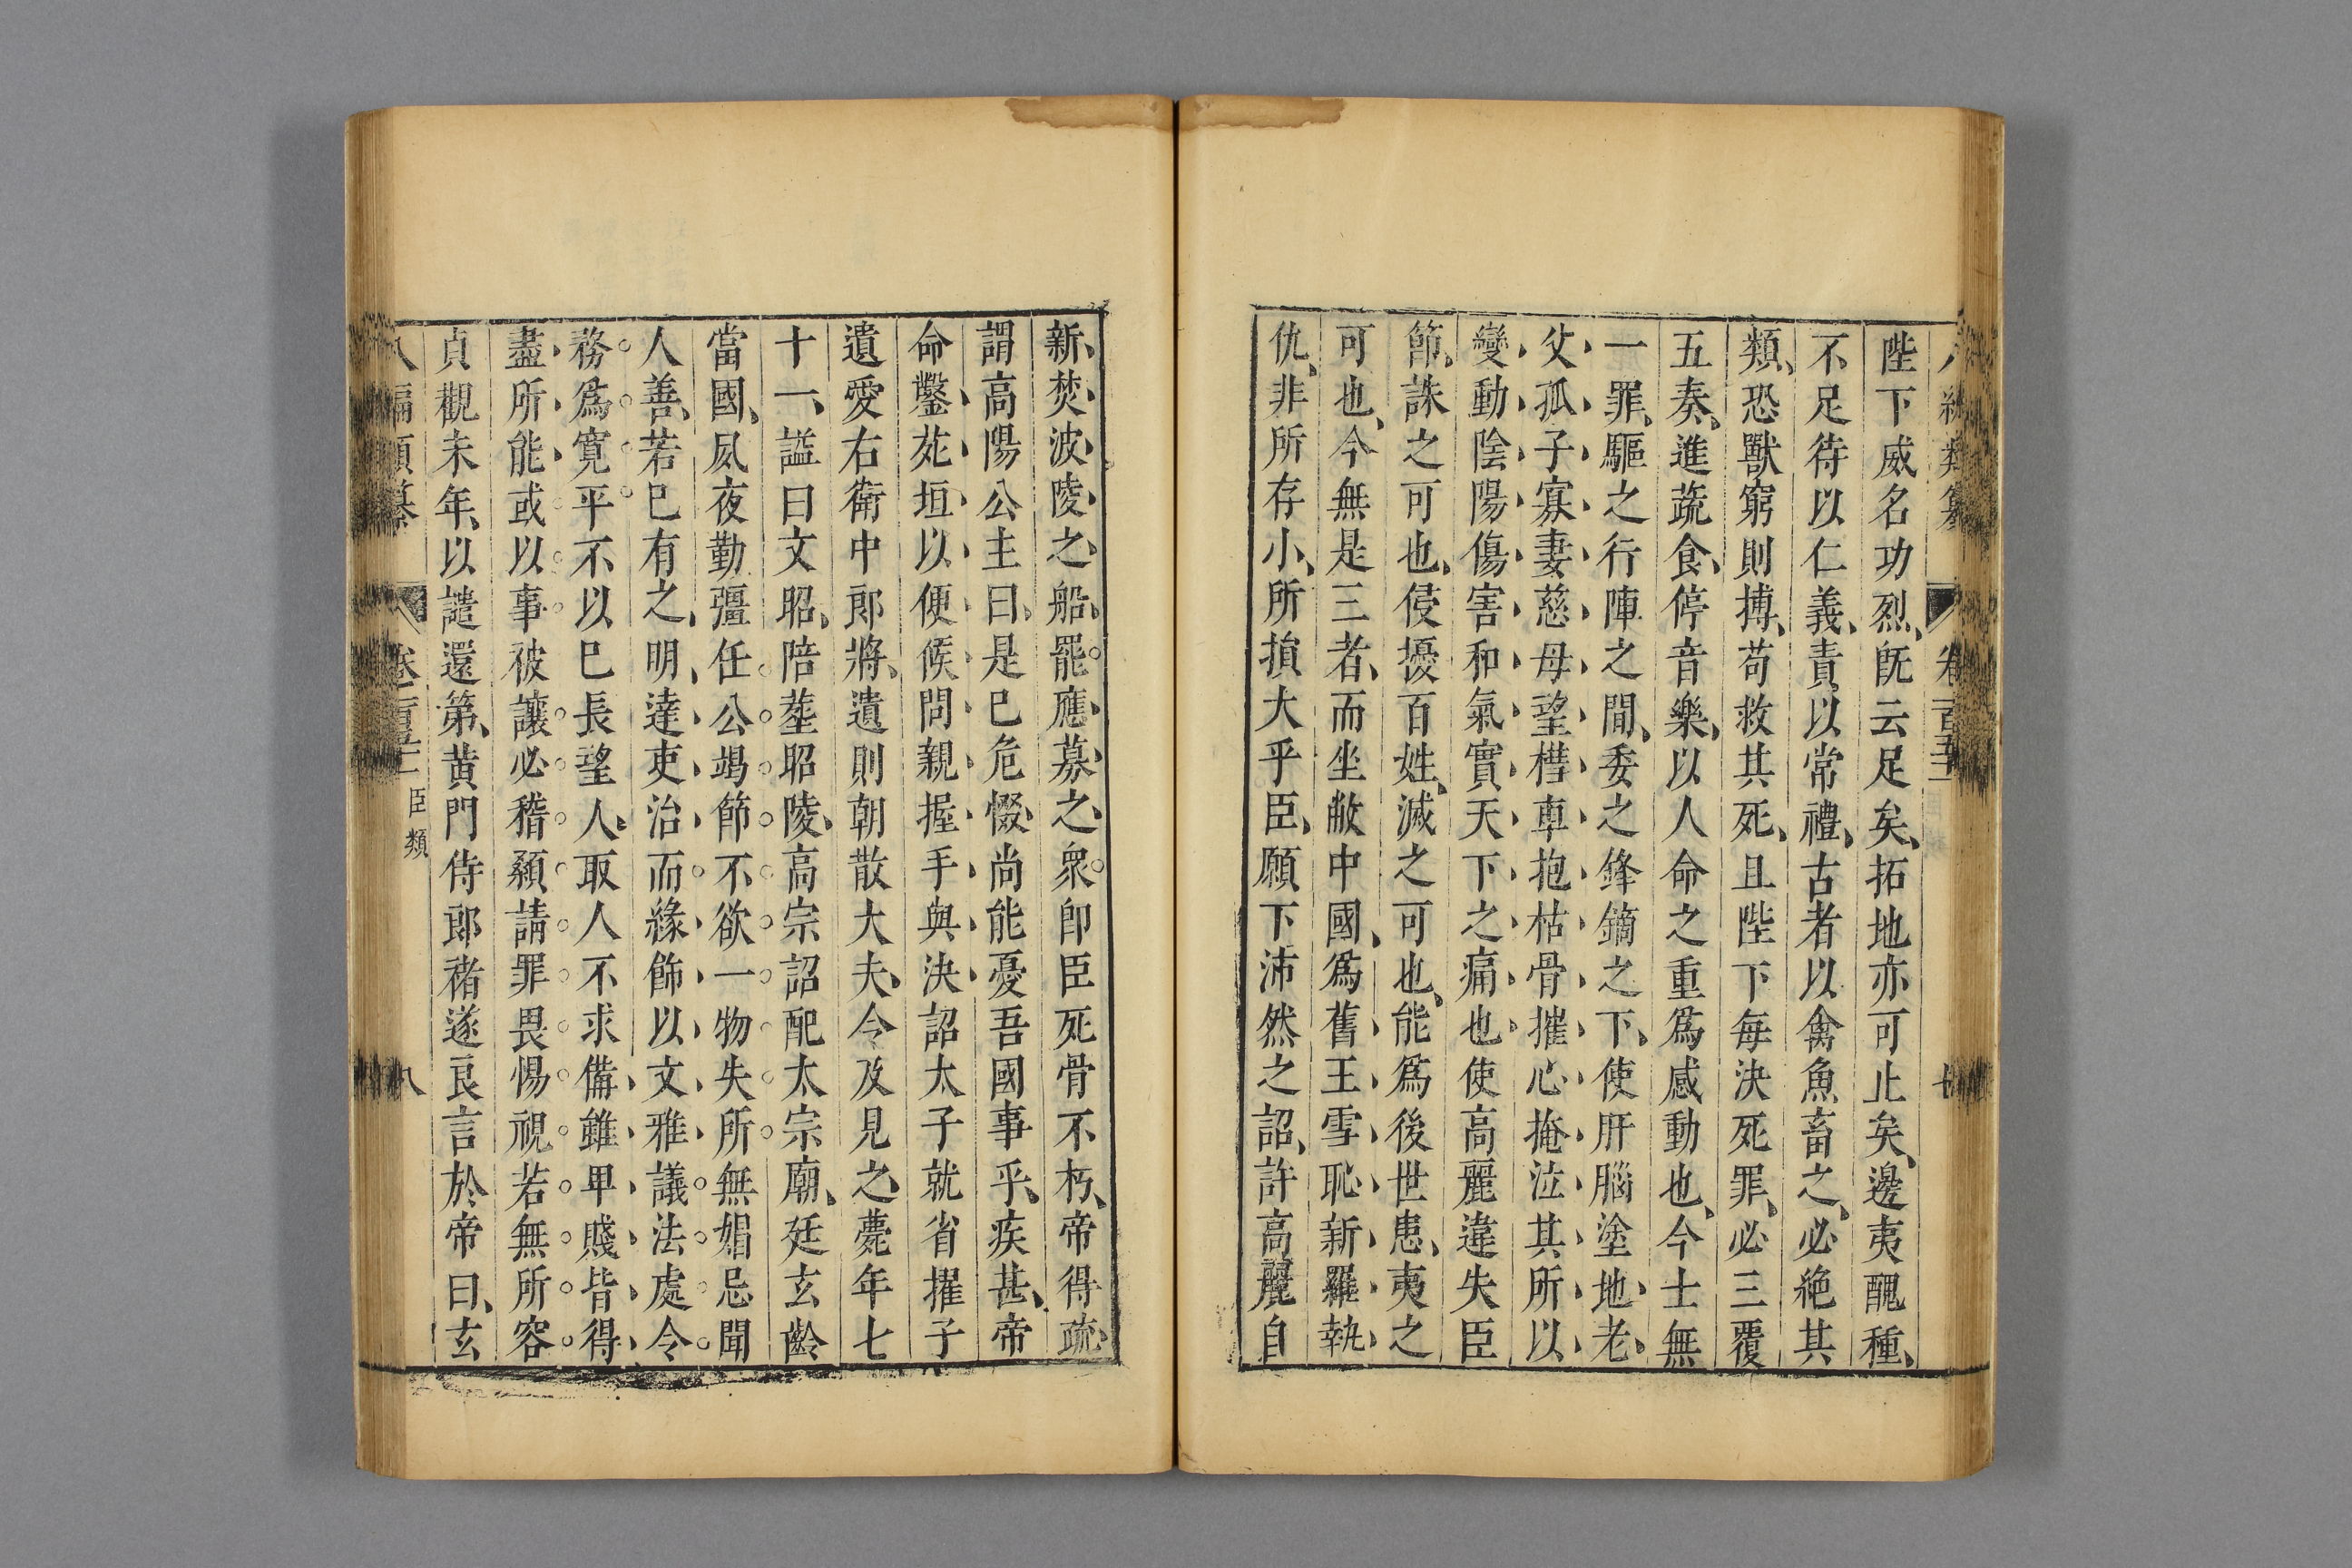 陛下威名功烈旣云足矣拓地亦可止矣邊夷醜種
不足待以仁義責以常禮古者以禽魚畜之必絶其
類恐獸窮則搏苟救其死且陛下每決死罪必三覆
五奏進蔬食停音樂以人命之重爲感動也今士無
一罪驅之行陣之間委之鋒鏑之下使肝腦塗地老
父孤子寡妻慈母望槥車抱枯骨摧心掩泣其所以
變動陰陽傷害和氣實天下之痛也使高麗違失臣
節誅之可也侵擾百姓滅之可也能爲後世患夷之
可也今無是三者而坐敝中國爲舊王雪恥新羅執
仇非所存小所損大乎臣願下沛然之詔許高麗自
新焚波陵之船罷應募之衆卽臣死骨不朽帝得疏
謂高陽公主曰是已危惙尚能憂吾國事乎疾甚帝
命鑿苑垣以便候問親握手與決詔太子就省擢子
遺愛右衛中郎將遺則朝散大夫令及見之薨年七
十一諡曰文昭陪塟昭陵高宗詔配太宗廟廷玄齡
當國夙夜勤彊任公竭節不欲一物失所無媢忌聞
人善若已有之明達吏治而緣飾以文雅議法處令
務爲寬平不以巳長望人取人不求備雖卑賤皆得
盡所能或以事被讓必稽顙請罪畏惕視若無所容
貞觀末年以譴還第黄門侍郎褚遂良言於帝曰玄
臣類
八